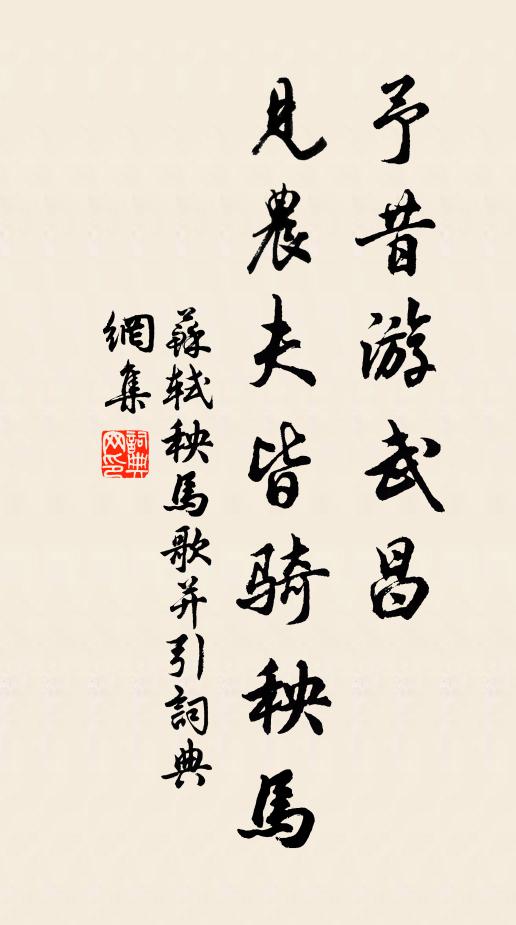 予昔游武昌
見農夫皆騎秧馬
蘇軾秧馬歌并引詞典
網集
詞典網印